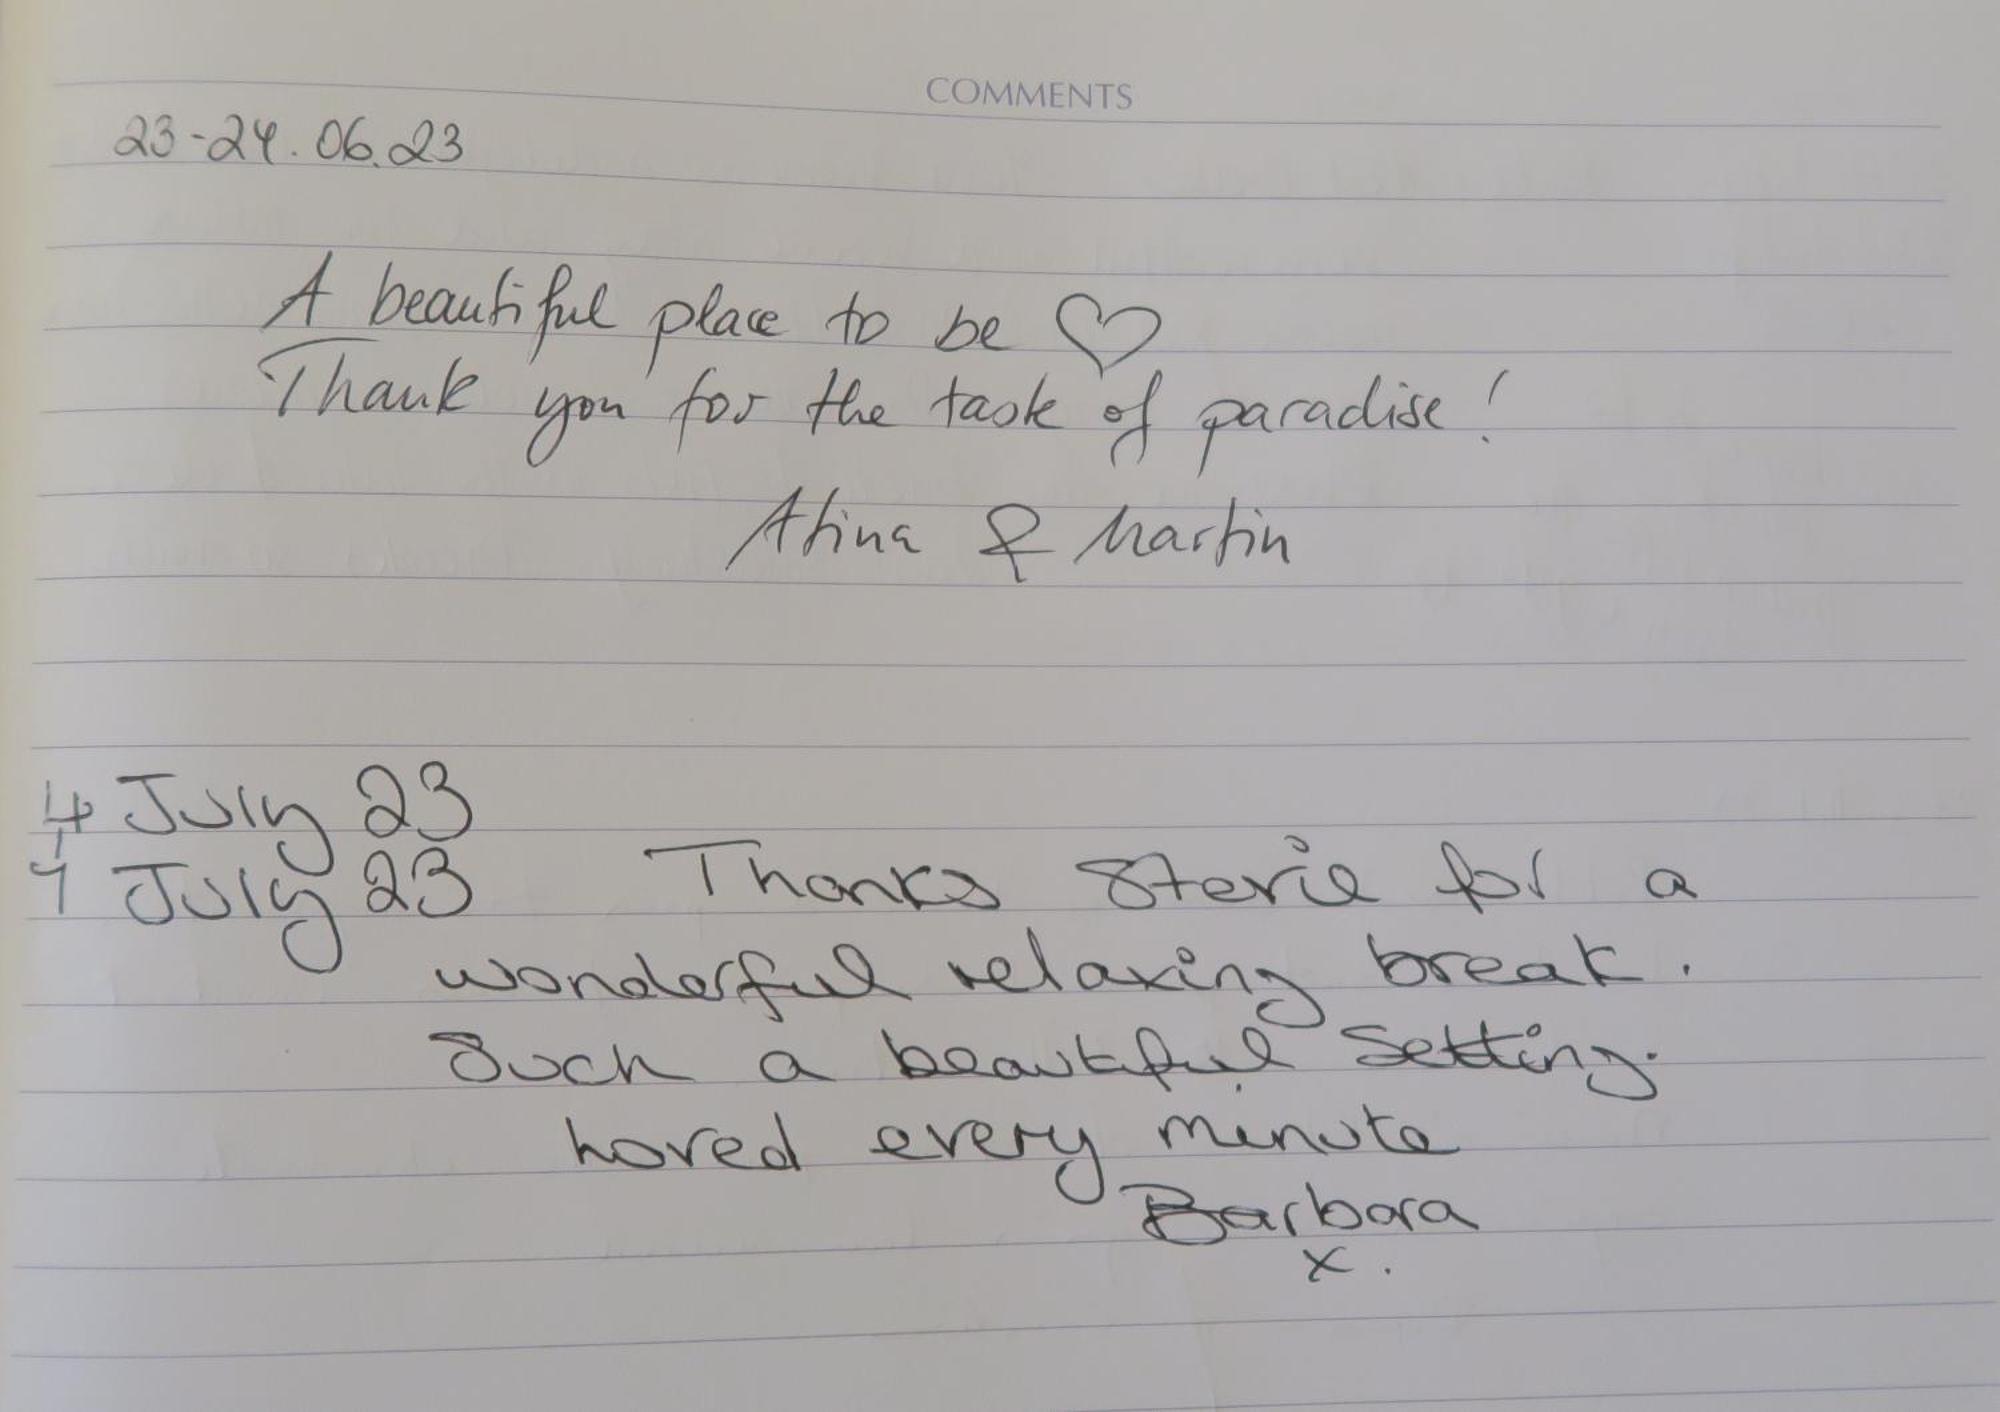 COMMENTS
23-24.06.23
A beautiful place to be ♡
Thank you for the taste of paradise!
Alina & Martin
4 July 23
7 July 23 Thanks Stevie for a
wonderful relaxing break.
Such a beautiful setting.
Loved every minute
Barbara
x.